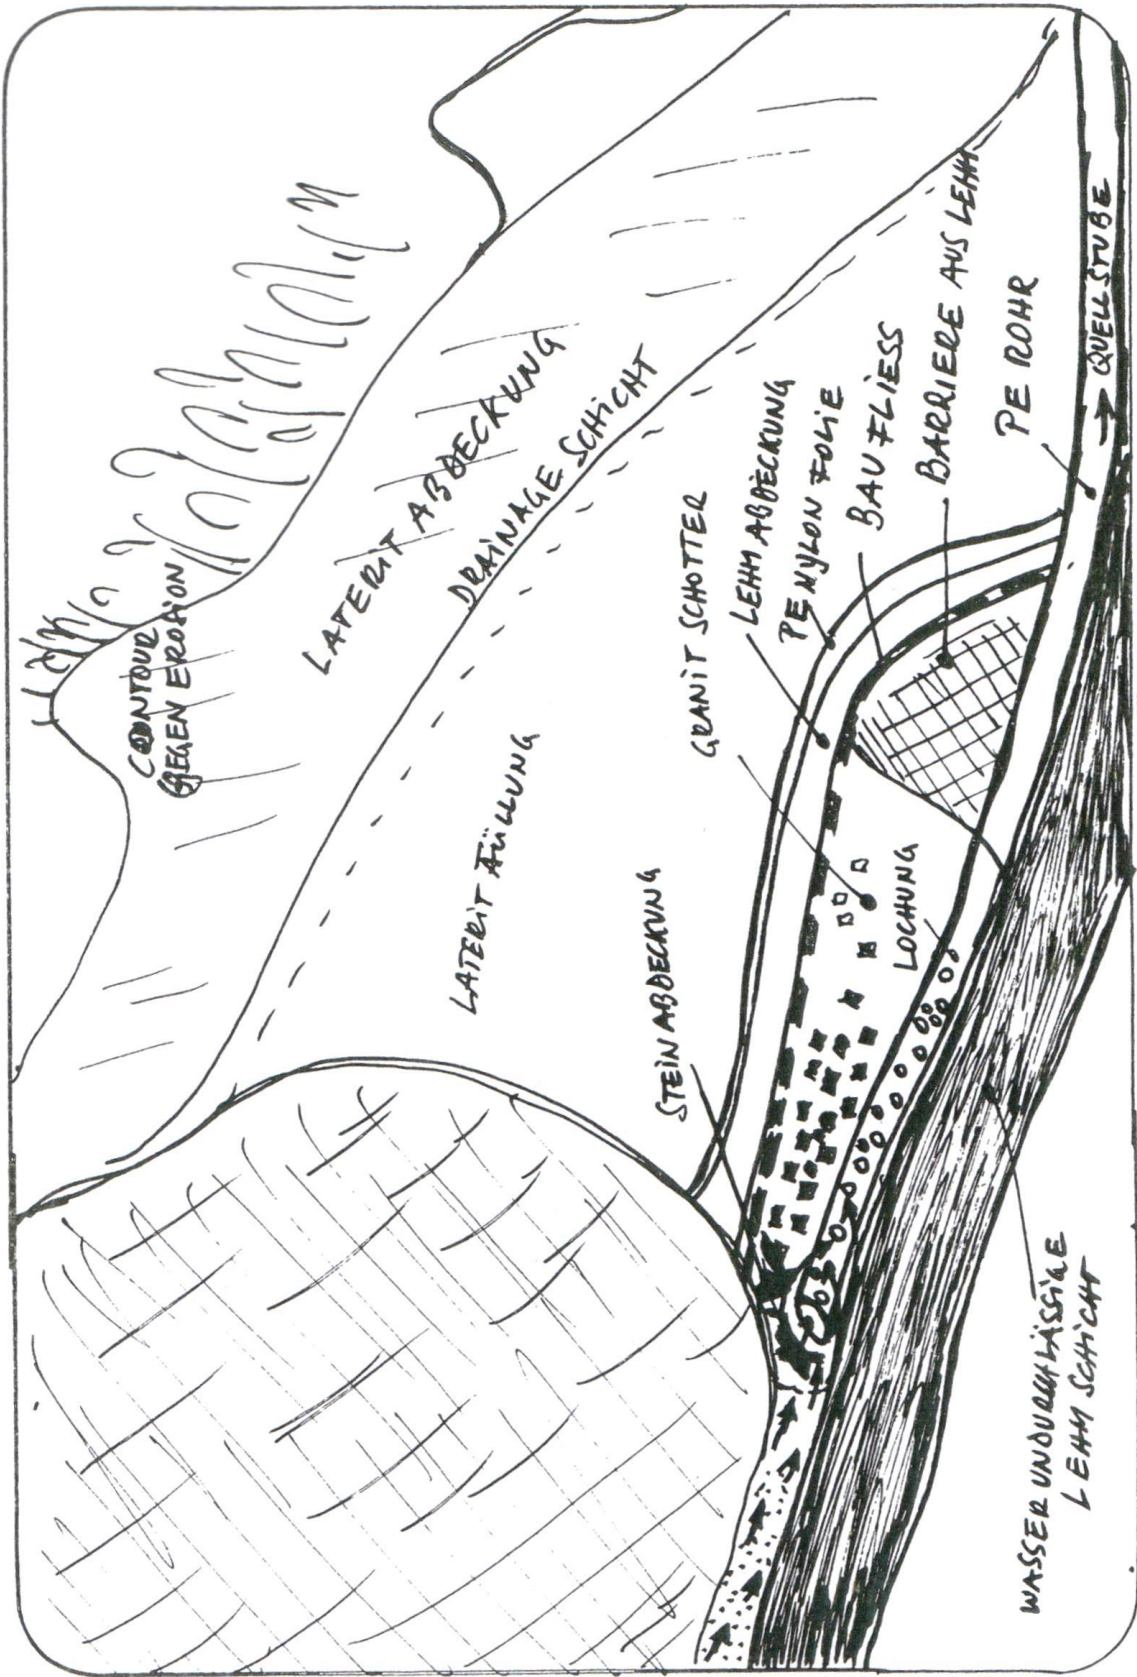 CONTOUR
GEGEN EROSION
LATERIT ABDECKUNG
DRAINAGE SCHICHT
LATERIT FÜLLUNG
GRANIT SCHOTTER
LEHM ABDECKUNG
PE NYLON FOLIE
BAU FLIESS
BARRIERE AUS LEHM
PE ROHR
→ QUELLSTUBE
STEIN ABDECKUNG
LOCHUNG
WASSER UNDURCHLÄSSIGE
LEHM SCHICHT